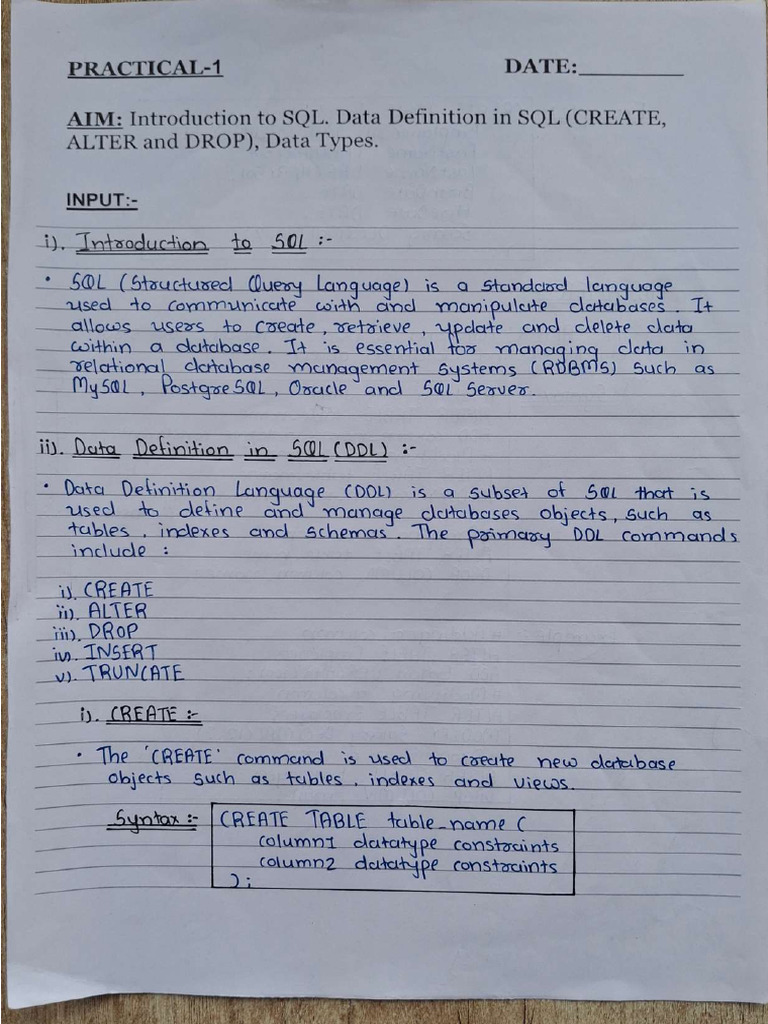 PRACTICAL-1 DATE:__________
AIM: Introduction to SQL. Data Definition in SQL (CREATE,
ALTER and DROP), Data Types.
INPUT:-
i). Introduction to SQL :-
• SQL (Structured Query Language) is a standard language
used to communicate with and manipulate databases. It
allows users to create, retrieve, update and delete data
within a database. It is essential for managing data in
relational database management systems (RDBMS) such as
MySQL, PostgreSQL, Oracle and SQL Server.
ii). Data Definition in SQL (DDL) :-
• Data Definition Language (DDL) is a subset of SQL that is
used to define and manage databases objects, such as
tables, indexes and schemas. The primary DDL commands
include :
i). CREATE
ii). ALTER
iii). DROP
iv). INSERT
v). TRUNCATE
i). CREATE :-
• The 'CREATE' command is used to create new database
objects such as tables, indexes and views.
Syntax :- CREATE TABLE table_name (
column1 datatype constraints
column2 datatype constraints
);